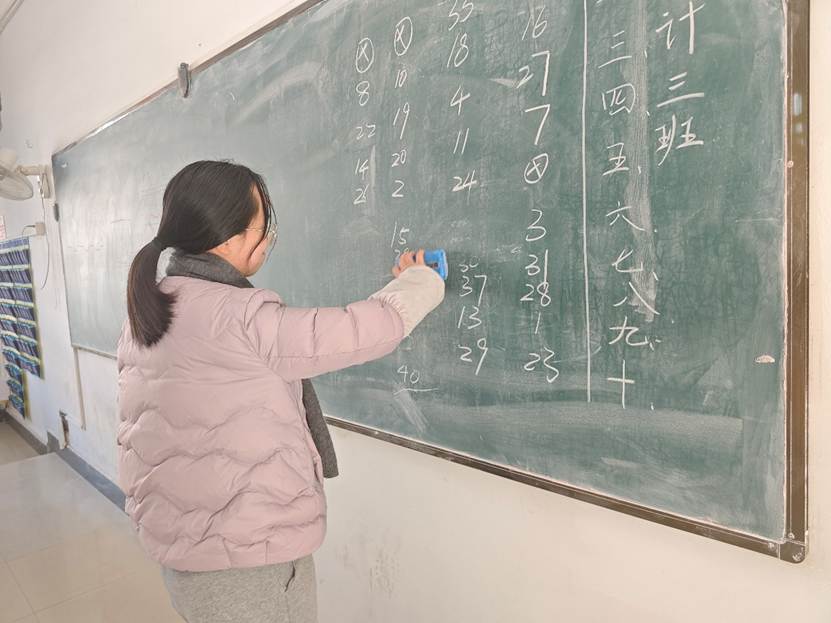 计三班
三、四、五、六、七、八、九、十、
16
27
7
3
31
28
1
23
35
18
4
11
24
30
37
13
29
10
19
20
2
15
40
8
22
14